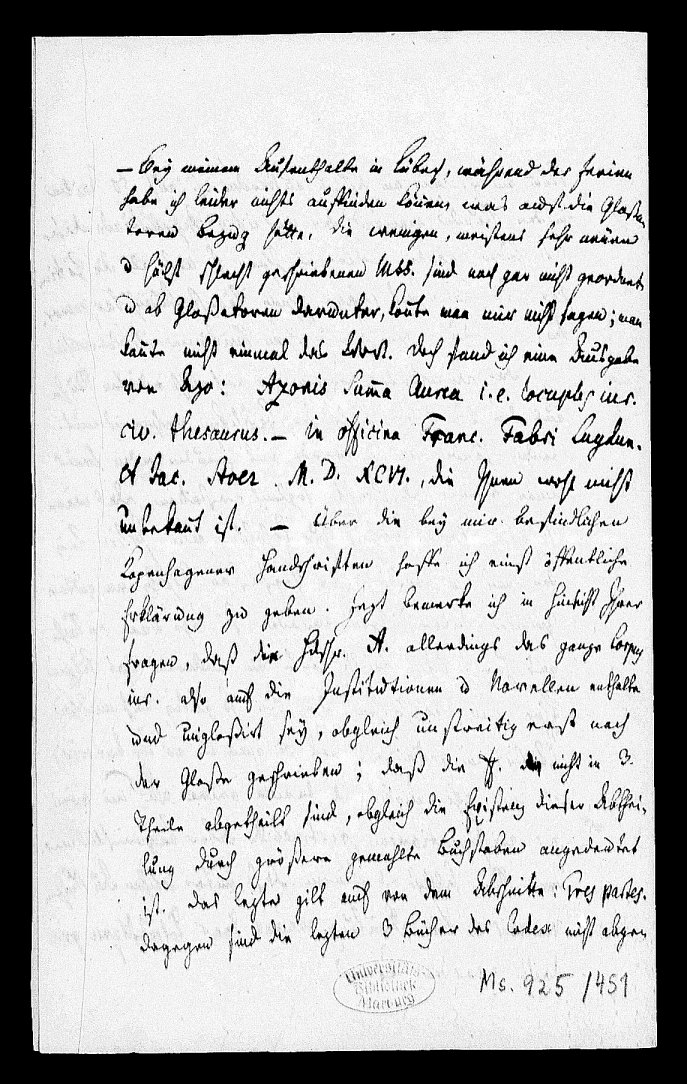 – Bey meinem Aufenthalte in Lübeck, während der Ferien
habe ich leider nichts auffinden können, was auf die Glossa-
toren Bezug hätte, die wenigen, meistens sehr neuen
u höchst schlecht geschriebenen Mss. sind noch gar nicht geordnet
u ob Glossatoren darunter, konnte man mir nicht sagen; man
kannte nicht einmal das Wort. Doch fand ich eine Ausgabe
von Azo: Azonis Summa Aurea i. e. locuples iur.
civ. thesaurus. – in officina Franc. Fabri Lugdun.
et Jac. M. D. XCVI., die Ihnen wohl nicht
unbekannt ist. – Über die bey mir befindlichen
Kopenhagener Handschriften hoffe ich einst öffentliche
Erklärung zu geben. Jezt bemerke ich in Hinsicht Ihrer
Fragen, daß die Hdschr. A. allerdings das ganze Corpus
iur. also auch die Institutionen u Novellen enthalte
und unglossirt sey, obgleich unstreitig erst nach
der Glosse geschrieben; daß die ff. nicht in 3.
Theile abgetheilt sind, obgleich die Existenz dieser Abthei-
lung durch größere gemahlte Buchstaben angedeutet
ist. Das lezte gilt auch von dem Abschnitte: Tres partes.
dagegen sind die lezten 3 Bücher des Codex nicht abgeson
Universitäts
Bibliothek
Marburg
Ms. 925/451